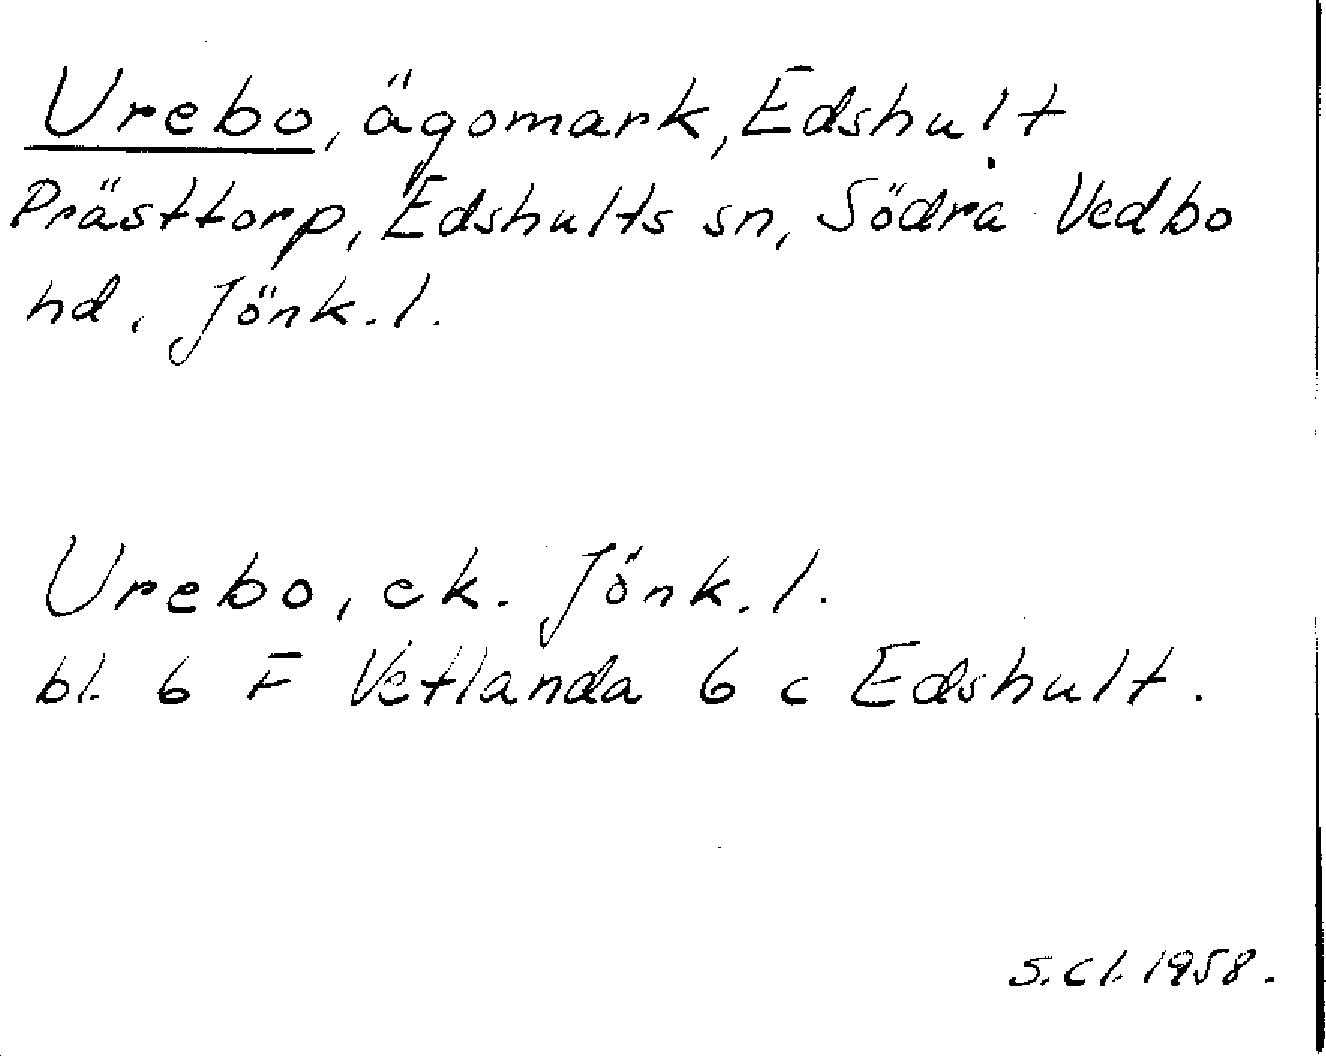 Urebo, ägomark, Edshult
Prästtorp, Edshults sn, Södra Vedbo
hd, Jönk. l.
Urebo, ek. Jönk. l.
bl. 6 F Vetlanda 6 c Edshult.
S. Cl. 1958.